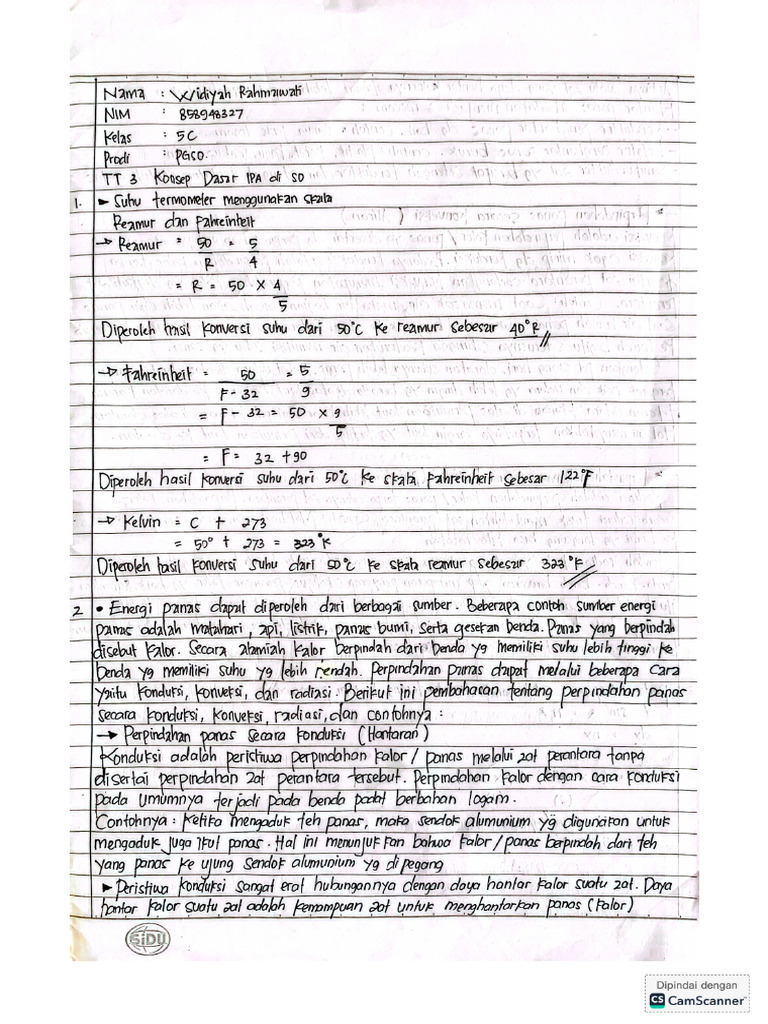 Nama : Widiyah Rahmawati
NIM : 858948327
Kelas : 5C
Prodi : PGSD.
TT 3 Konsep Dasar IPA di SD
1. ► Suhu termometer menggunakan skala
Reamur dan Fahreinheit
→ Reamur = 50 = 5
R 4
= R = 50 × 4
5
Diperoleh hasil konversi suhu dari 50°C ke reamur sebesar 40°R //
→ Fahreinheit = 50 = 5
F - 32 9
= F - 32 = 50 × 9
5
= F = 32 + 90
Diperoleh hasil konversi suhu dari 50°C ke skala Fahreinheit sebesar 122°F
→ Kelvin = C + 273
= 50° + 273 = 323°K
Diperoleh hasil konversi suhu dari 50°C ke skala reamur sebesar 323°K //
2 • Energi panas dapat diperoleh dari berbagai sumber. Beberapa contoh sumber energi
panas adalah matahari, api, listrik, panas bumi, serta gesekan benda. Panas yang berpindah
disebut kalor. Secara alamiah kalor berpindah dari benda yg memiliki suhu lebih tinggi ke
benda yg memiliki suhu yg lebih rendah. Perpindahan panas dapat melalui beberapa cara
yaitu konduksi, konveksi, dan radiasi. Berikut ini pembahasan tentang perpindahan panas
secara konduksi, konveksi, radiasi, dan contohnya :
→ Perpindahan panas secara konduksi (Hantaran)
Konduksi adalah peristiwa perpindahan kalor / panas melalui zat perantara tanpa
disertai perpindahan zat perantara tersebut. Perpindahan kalor dengan cara konduksi
pada umumnya terjadi pada benda padat berbahan logam.
Contohnya : Ketika mengaduk teh panas, maka sendok alumunium yg digunakan untuk
mengaduk juga ikut panas. Hal ini menunjukkan bahwa kalor / panas berpindah dari teh
yang panas ke ujung sendok alumunium yg di pegang
► Peristiwa konduksi sangat erat hubungannya dengan daya hantar kalor suatu zat. Daya
hantar kalor suatu zat adalah kemampuan zat untuk menghantarkan panas (kalor)
SIDU
Dipindai dengan
CS CamScanner